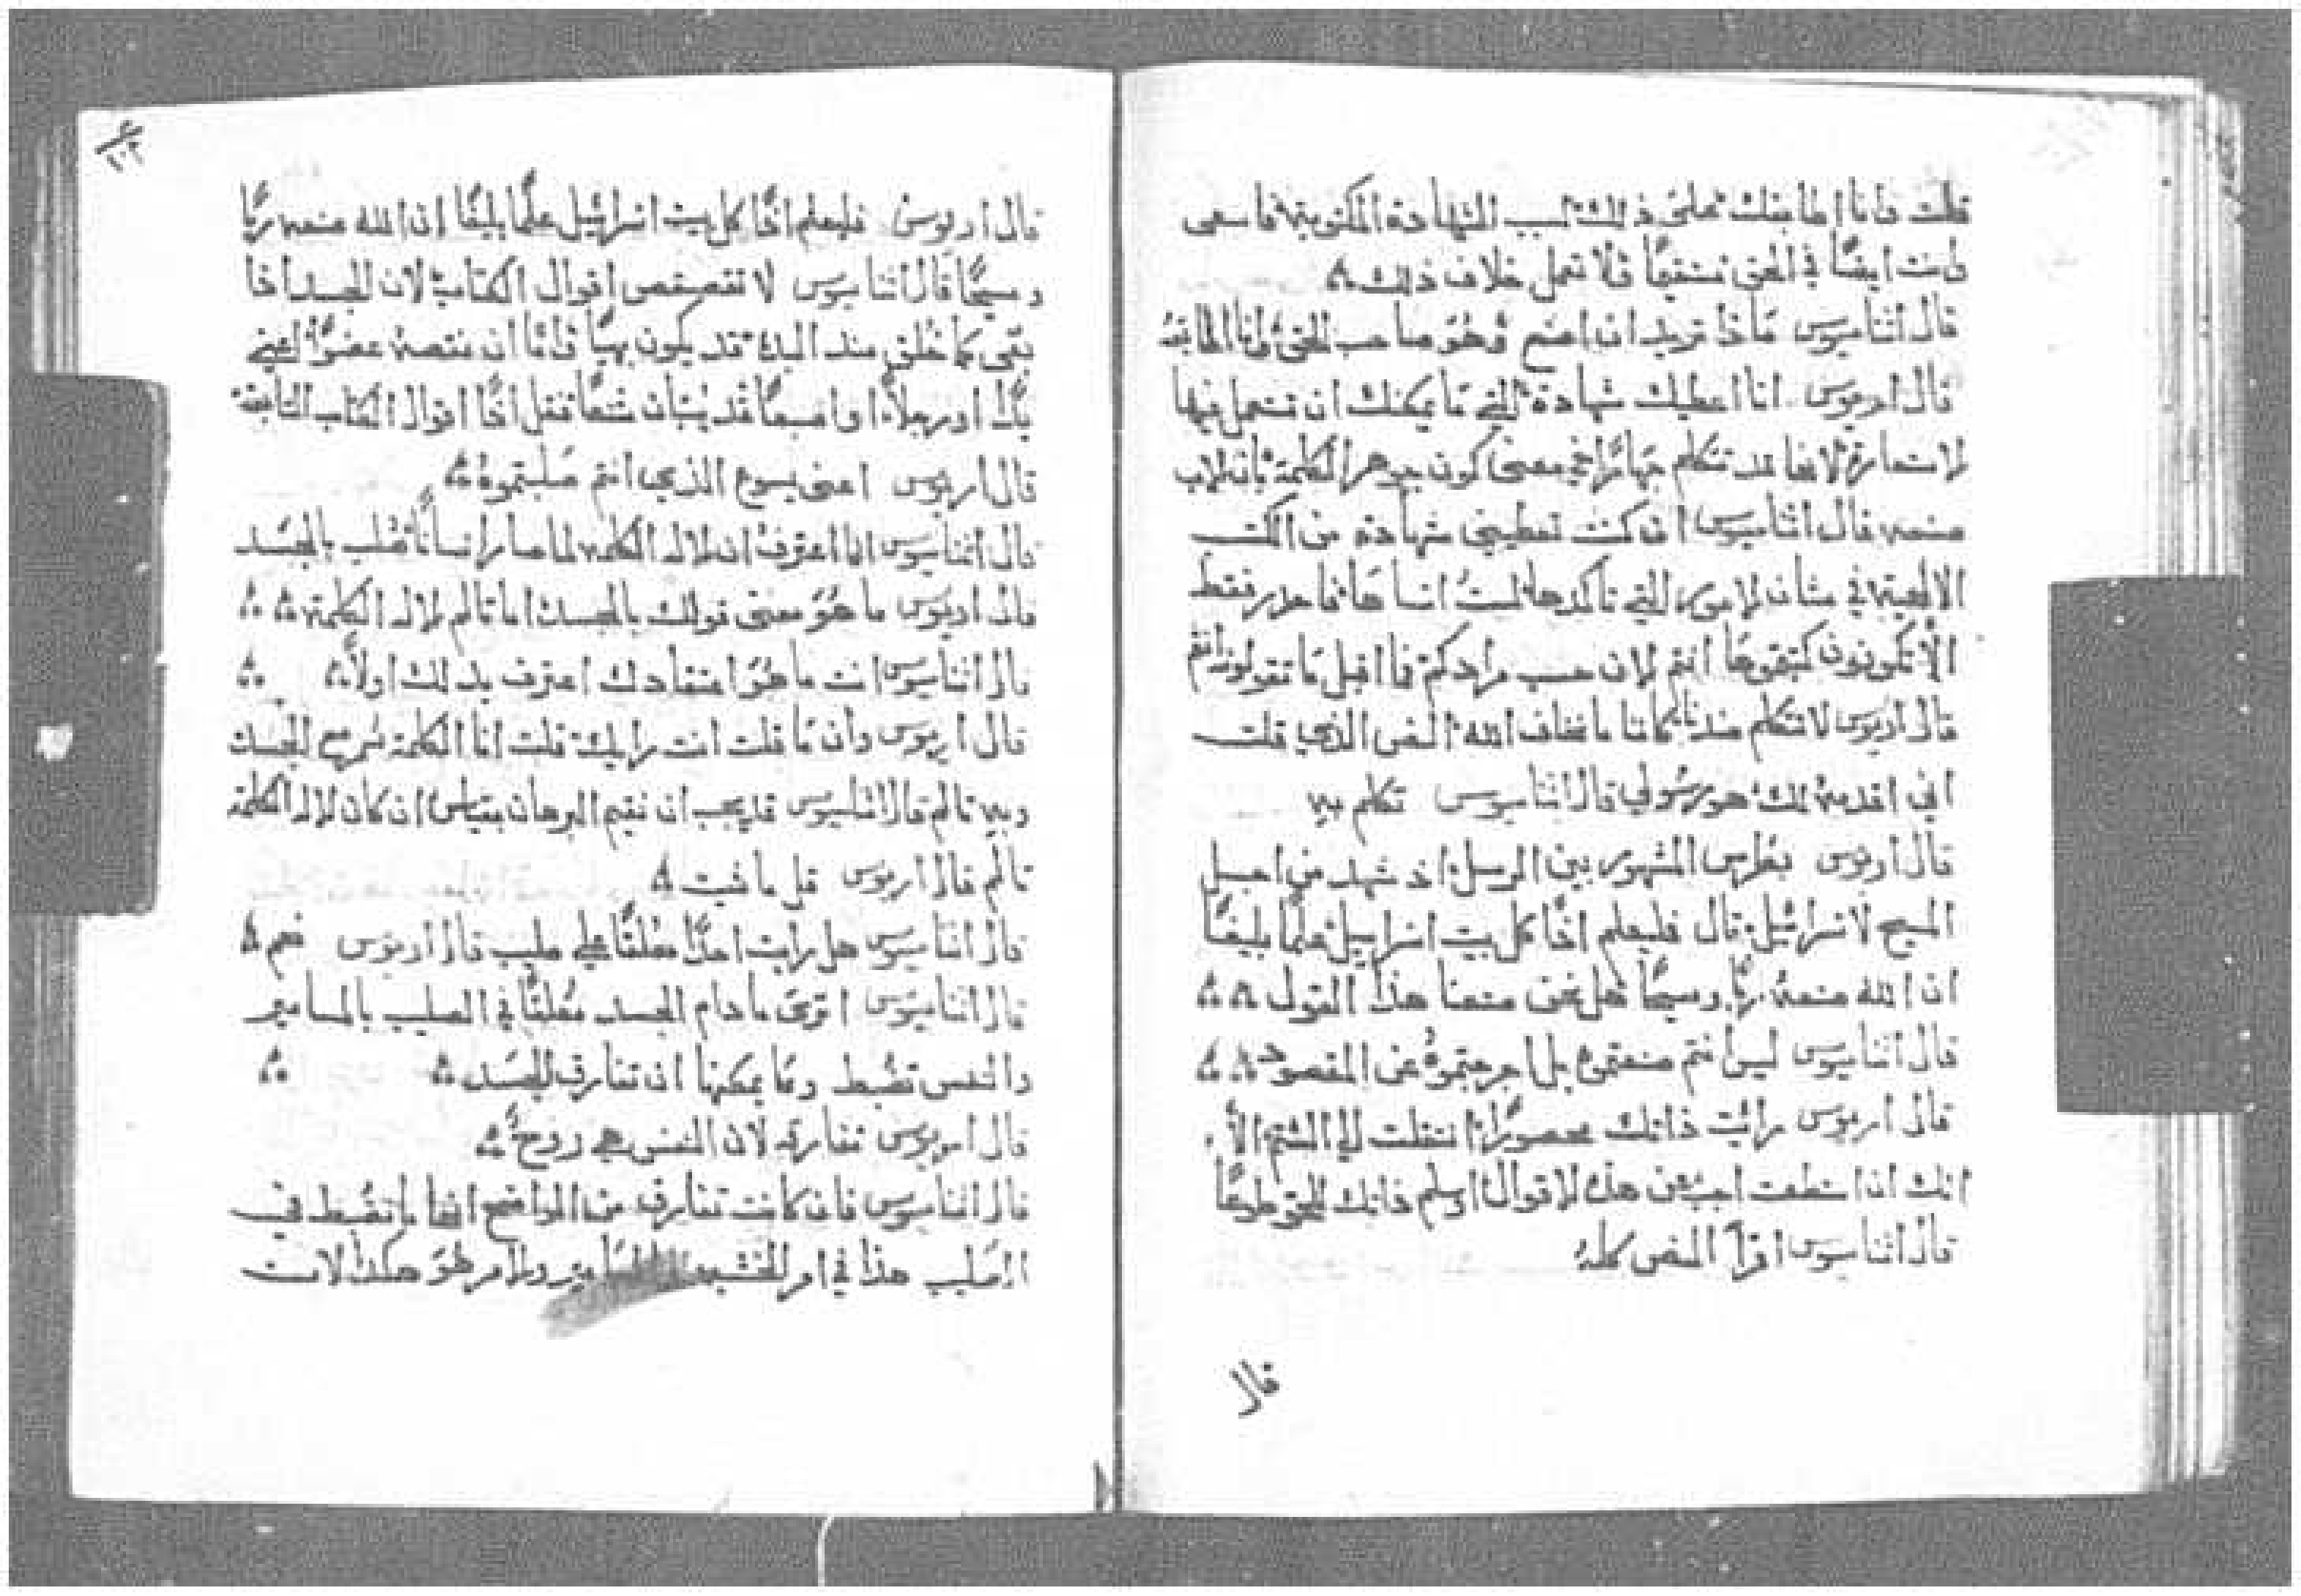 قلت فانا اطابقك على ذلك لسبب الشهادة المكتوبة فاسعى
وانت ايضًا في الحق مستقيمًا ولا تعمل خلاف ذلك
قال اثناسيوس مَاذا تريد ان اصنع وهُوَ صاحب الحق وانا اطابقه
قال اريوس انا اعطيك شهادة التي مَا يمكنك ان تستعمل فيها
لاستعارة لانها قد تتكلم جهارًا في معنى كون جوهر الكلمة بان لاب
صنعه قال اثناسيوس ان كنت تعطيني شهادة من الكتب
الالهية في شان لامور التي تاكدها لستُ انساهَا فاحدر فقط
الّا تكونون كتبتموهَا انتم لان حسب مرادكم فا اقبل مَا تقولونه انتم
قال اريوس لا تتكلم ما تخاف الله النص الذي قلت
اني اقدمه لك هو رسُولي قال اثناسيوس تكلم به
قال اريوس بطرس المشهور بين الرسل اذ شهد من اجل
المسيح لاسرائيل قال فليعلم اذًا كل بيت اسراييل علمًا بليغًا
ان الله صنعهُ ربًّا ومسيحًا هَل نحن صنعنا هذا القول
قال اثناسيوس ليس انتم صنعتموهُ بل اخرجتموهُ عن المقصود
قال اريوس مرايت ذاتك محصورًا انتقلت الى الشتم الّا
انك اذا استطعت اجب عن هذه لاقوال او سلم ذاتك للحق طوعًا
قال اثناسيوس اقرأ النص كلهُ
قال
١٠٢
قال اريوس فليعلم اذًا كل بيت اسرائيل علمًا بليغًا ان الله صنعه ربًّا
ومسيحًا قال اثناسيوس لا تقصقص اقوال الكتاب لان الجسد اذا
بقى كما خُلق منذ البدء قد يكون بهيًّا وامَّا ان نقصهُ عضوًا اعني
يدًا او رجلًا او اصبعًا قد يُبان شنعًا فقل اذًا اقوال الكتاب التابعة
قال اريوس اعنى يسوع الذي انتم صَلبتموهُ
قال اثناسيوس انا اعترف ان لاله الكلمه لما صار انسانًا صُلب بالجسَد
قال اريوس ما هُوَ معنى قولك بالجسد اما تالم لاله الكلمة
قال اثناسيوس انت ما هُوَ اعتقادك اعترف بذلك اولًا
قال اريوس وان مَا قلت انت رايك قلت انا الكلمة سُمر مع الجسد
وبه تالم قال اثناسيوس قد يجب ان نقيم البرهان بقياس ان كان لاله الكلمة
تالم قال اريوس قل ما شيت
قال اثناسيوس هل رايت احدًا معلقًا على صليب قال اريوس نعم
قال اثناسيوس اترى ما دام الجسد مُعلقًا في الصليب بالمسامير
والنفس تضبط ومَا يمكنها ان تفارق الجسَد
قال اريوس تفارقه لان النفس هي روحٌ
قال اثناسيوس فان كانت تفارق من الواضح انها ما تضبط في
الصَليب هذا في امر الخشبه والمسَامير ولامر هُوَ هكذا لان